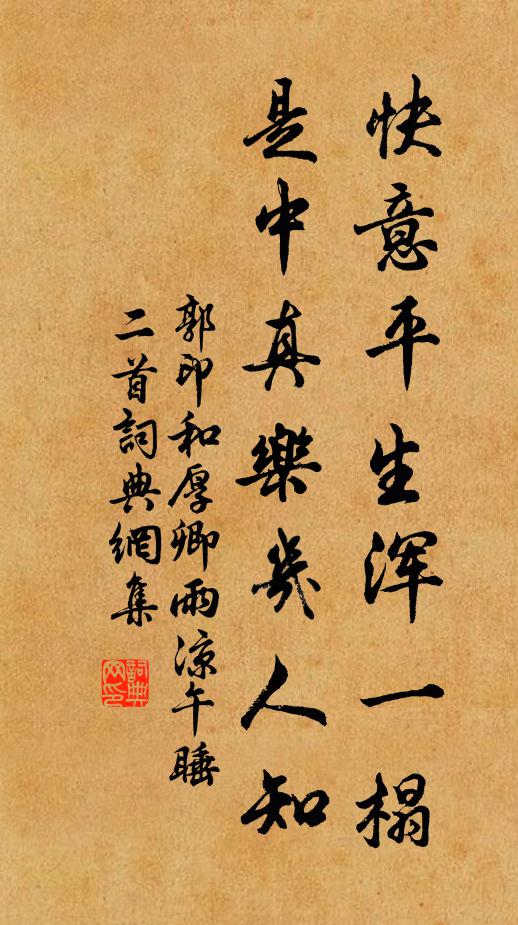 快意平生浑一榻
是中真樂幾人知
郭印和厚卿雨涼午睡
二首詞典網集
詞典網印